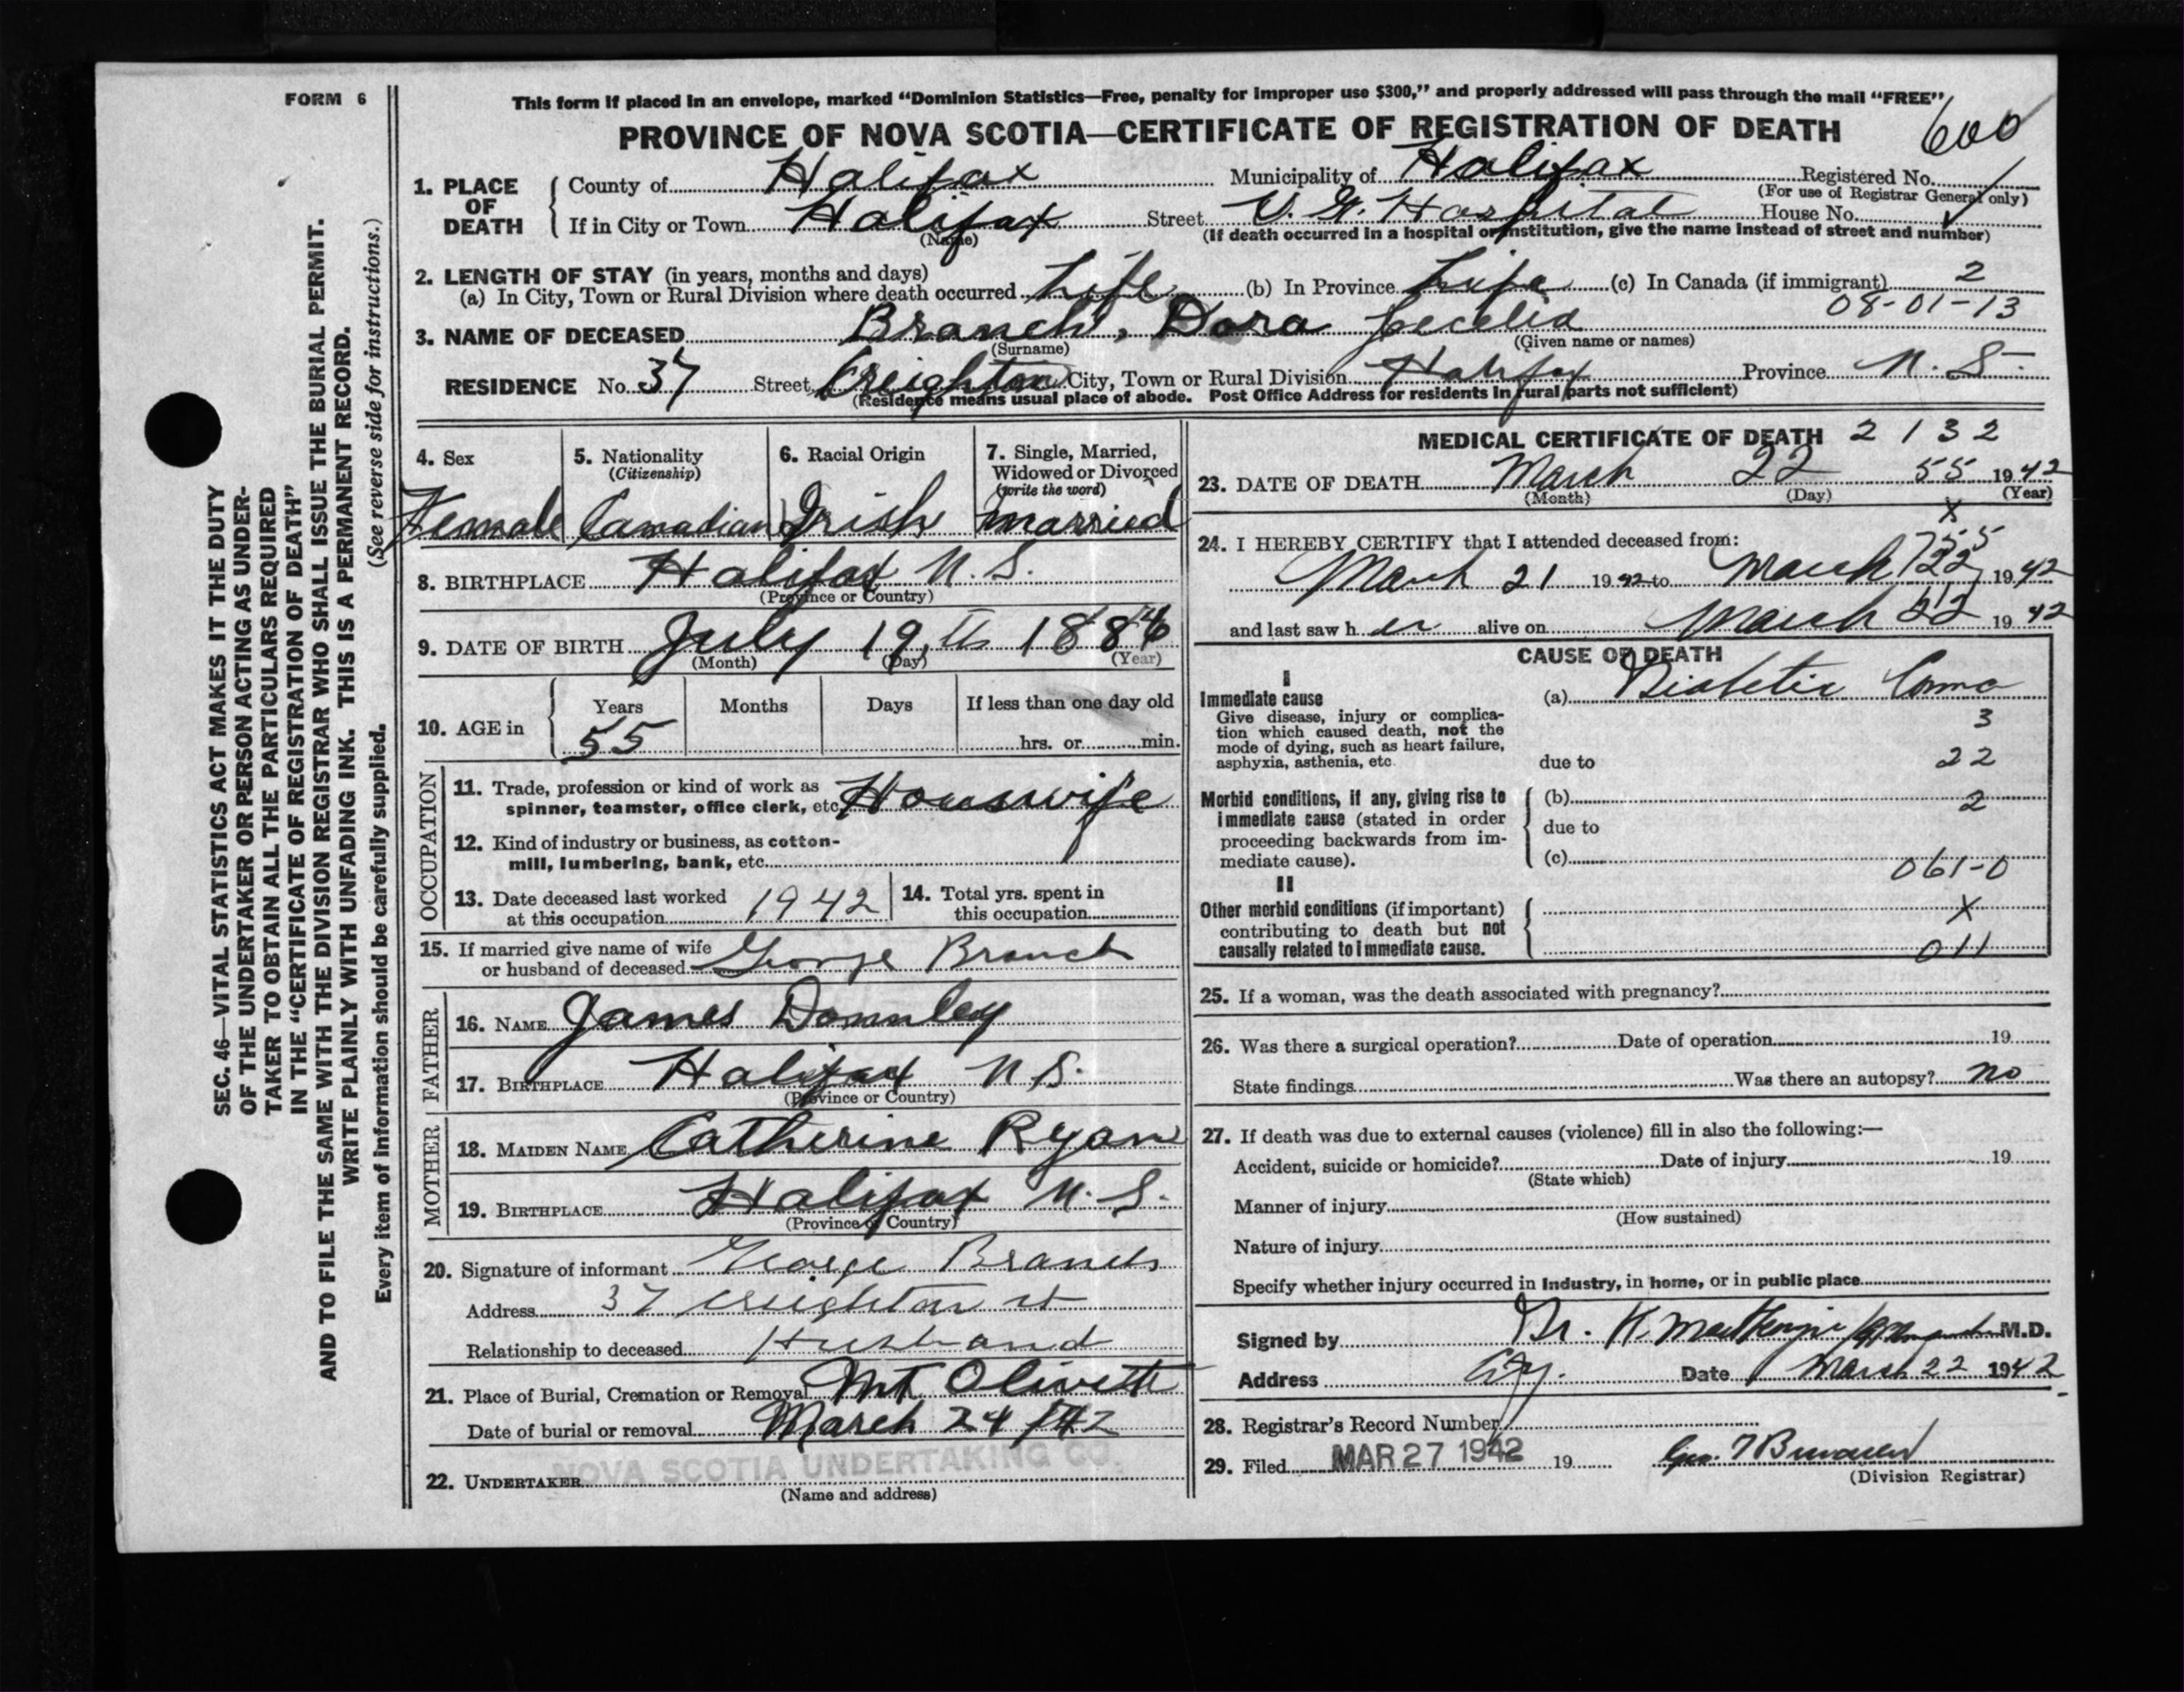 FORM 6
This form if placed in an envelope, marked “Dominion Statistics—Free, penalty for improper use $300,” and properly addressed will pass through the mail “FREE”
PROVINCE OF NOVA SCOTIA—CERTIFICATE OF REGISTRATION OF DEATH
600
1. PLACE OF DEATH
County of Halifax Municipality of Halifax Registered No.
(For use of Registrar General only)
If in City or Town Halifax Street V. G. Hospital House No.
(Name) (If death occurred in a hospital or institution, give the name instead of street and number)
2. LENGTH OF STAY (in years, months and days)
(a) In City, Town or Rural Division where death occurred Life (b) In Province Life (c) In Canada (if immigrant) 2
08-01-13
3. NAME OF DECEASED Branch, Dora Cecelia
(Surname) (Given name or names)
RESIDENCE No. 37 Street Creighton City, Town or Rural Division Halifax Province N. S.
(Residence means usual place of abode. Post Office Address for residents in rural parts not sufficient)
4. Sex
Female
5. Nationality
(Citizenship)
Canadian
6. Racial Origin
Irish
7. Single, Married,
Widowed or Divorced
(write the word)
married
8. BIRTHPLACE Halifax N. S.
(Province or Country)
9. DATE OF BIRTH July 19th 188
(Month) (Day) (Year)
10. AGE in
Years Months Days If less than one day old
55 hrs. or min.
OCCUPATION
11. Trade, profession or kind of work as
spinner, teamster, office clerk, etc. Houswife
12. Kind of industry or business, as cotton-
mill, lumbering, bank, etc.
13. Date deceased last worked
at this occupation 1942
14. Total yrs. spent in
this occupation
15. If married give name of wife
or husband of deceased George Branch
FATHER
16. NAME James Donnley
17. BIRTHPLACE Halifax N S.
(Province or Country)
MOTHER
18. MAIDEN NAME Catherine Ryan
19. BIRTHPLACE Halifax N. S.
(Province or Country)
20. Signature of informant George Branch
Address 37 Creighton st
Relationship to deceased Husband
21. Place of Burial, Cremation or Removal Mt Olivett
Date of burial or removal March 24/42
22. UNDERTAKER NOVA SCOTIA UNDERTAKING CO.
(Name and address)
MEDICAL CERTIFICATE OF DEATH 2132
23. DATE OF DEATH March 22 55 1942
(Month) (Day) (Year)
X
24. I HEREBY CERTIFY that I attended deceased from:
755
March 21 1942 to March 22 1942
and last saw her alive on March 22 1942
CAUSE OF DEATH
I
Immediate cause (a) Diabetic Coma
Give disease, injury or complica-
tion which caused death, not the
mode of dying, such as heart failure,
asphyxia, asthenia, etc. due to
3
22
Morbid conditions, if any, giving rise to
immediate cause (stated in order
proceeding backwards from im-
mediate cause).
(b) 2
due to
(c)
061-0
II
Other morbid conditions (if important)
contributing to death but not
causally related to immediate cause.
X
011
25. If a woman, was the death associated with pregnancy?
26. Was there a surgical operation? Date of operation 19
State findings Was there an autopsy? no
27. If death was due to external causes (violence) fill in also the following:—
Accident, suicide or homicide? Date of injury 19
(State which)
Manner of injury
(How sustained)
Nature of injury
Specify whether injury occurred in Industry, in home, or in public place
Signed by Dr. K. MacKenzie M.D.
Address City. Date March 22 1942
28. Registrar's Record Number
29. Filed MAR 27 1942 19 Geo.
(Division Registrar)
SEC. 46—VITAL STATISTICS ACT MAKES IT THE DUTY
OF THE UNDERTAKER OR PERSON ACTING AS UNDER-
TAKER TO OBTAIN ALL THE PARTICULARS REQUIRED
IN THE “CERTIFICATE OF REGISTRATION OF DEATH”
AND TO FILE THE SAME WITH THE DIVISION REGISTRAR WHO SHALL ISSUE THE BURIAL PERMIT.
WRITE PLAINLY WITH UNFADING INK. THIS IS A PERMANENT RECORD.
(See reverse side for instructions.)
Every item of information should be carefully supplied.